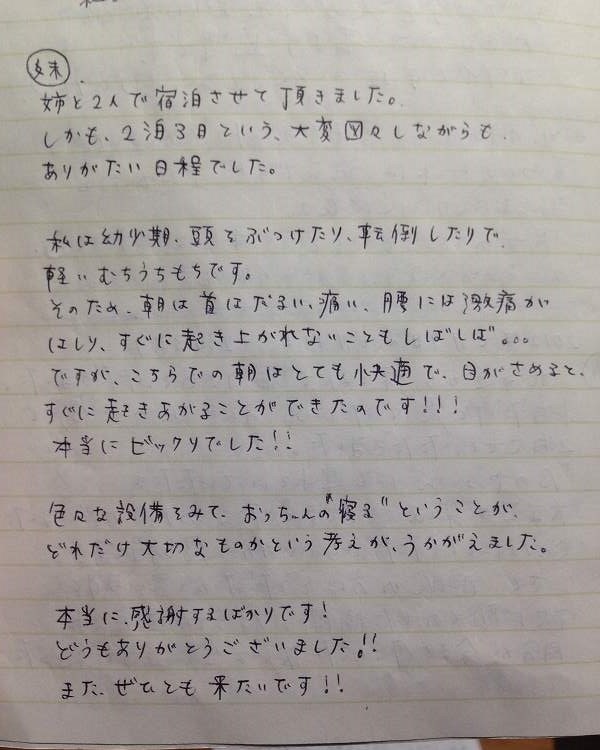 妹
姉と2人で宿泊させて頂きました。
しかも、2泊3日という、大変図々しながらも、
ありがたい日程でした。
私は幼少期、頭をぶつけたり、転倒したりで、
軽いむちうちもちです。
そのため、朝は首はだるい、痛い、腰には激痛が
はしり、すぐに起き上がれないこともしばしば。。。
ですが、こちらでの朝はとても快適で、目がさめると、
すぐに起きあがることができたのです!!!
本当にビックリでした!!
色々な設備をみて、おっちゃんの"寝る"ということが、
どれだけ大切なものかという考えが、うかがえました。
本当に、感謝するばかりです!
どうもありがとうございました!!
また、ぜひとも来たいです!!